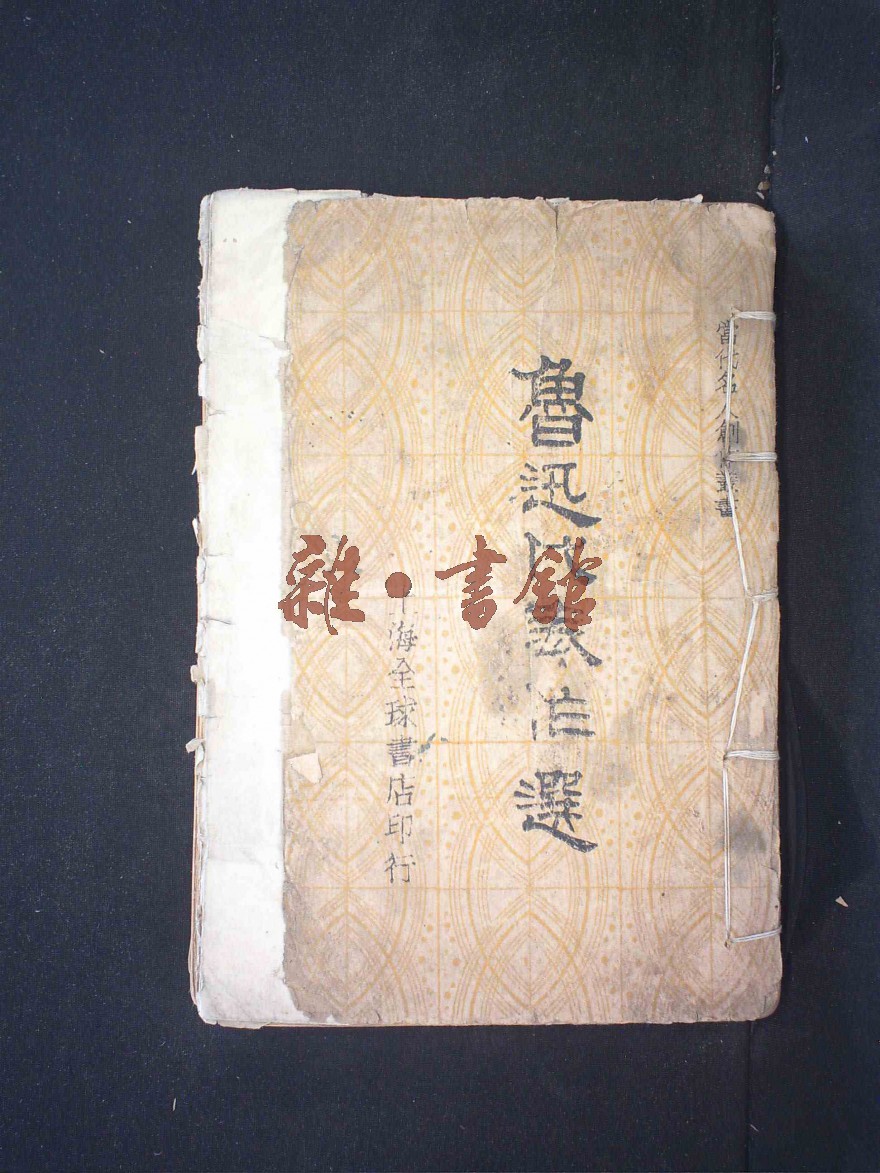 當代名人創作叢書
魯迅成表作選
上海全球書店印行
雜·書館